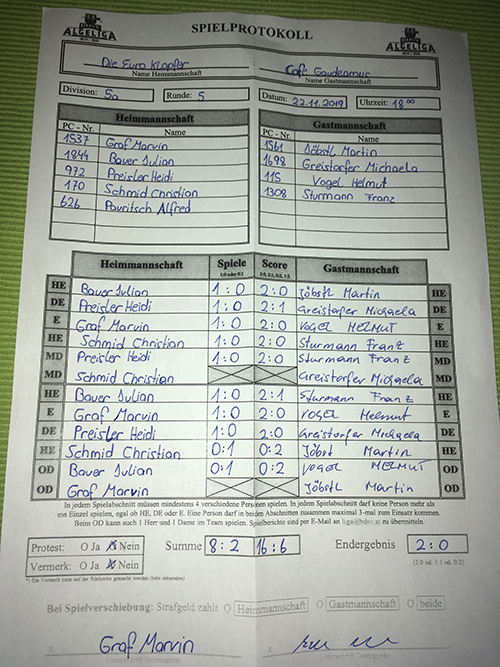 ALGELIGA SPIELPROTOKOLL ALGELIGA
Die Euro Klopfer Cafe Gaudeamus
Name Heimmannschaft Name Gastmannschaft
Division: 5a Runde: 5 Datum: 22.11.2019 Uhrzeit: 18 00
Heimmannschaft Gastmannschaft
PC - Nr. Name PC - Nr. Name
1537 Graf Marvin 1561 Jöbstl Martin
1844 Bauer Julian 1698 Greistorfer Michaela
972 Preisler Heidi 115 Vogel Helmut
170 Schmid Christian 1308 Sturmann Franz
626 Pauritsch Alfred
Heimmannschaft Spiele Score Gastmannschaft
1:0 oder 0:1 2:0, 2:1, 0:2, 1:2
HE Bauer Julian 1:0 2:0 Jöbstl Martin HE
DE Preisler Heidi 1:0 2:1 Greistorfer Michaela DE
E Graf Marvin 1:0 2:0 VOGEL HELMUT E
HE Schmid Christian 1:0 2:0 Sturmann Franz HE
MD Preisler Heidi 1:0 2:0 Sturmann Franz MD
MD Schmid Christian Greistorfer Michaela MD
HE Bauer Julian 1:0 2:1 Sturmann Franz HE
E Graf Marvin 1:0 2:0 VOGEL Helmut E
DE Preisler Heidi 1:0 2:0 Greistorfer Michaela DE
HE Schmid Christian 0:1 0:2 Jöbst Martin HE
OD Bauer Julian 0:1 0:2 VOGEL HELMUT OD
OD Graf Marvin Jöbstl Martin OD
In jedem Spielabschnitt müssen mindestens 4 verschiedene Personen spielen. In jedem Spielabschnitt darf keine Person mehr als
ein Einzel spielen, egal ob HE, DE oder E. Eine Person darf in beiden Abschnitten zusammen maximal 3-mal zum Einsatz kommen.
Beim OD kann auch 1 Herr und 1 Dame im Team spielen. Spielberichte sind per E-Mail an liga@bdsv.at zu übermitteln.
Protest: O Ja O Nein Summe 8:2 16:6 Endergebnis 2:0
Vermerk: O Ja O Nein (2:0 od. 1:1 od. 0:2)
*) Ein Vermerk kann auf der Rückseite gemacht werden (bitte umwenden)
Bei Spielverschiebung: Strafgeld zahlt O Heimmannschaft O Gastmannschaft O beide
x Graf Marvin x